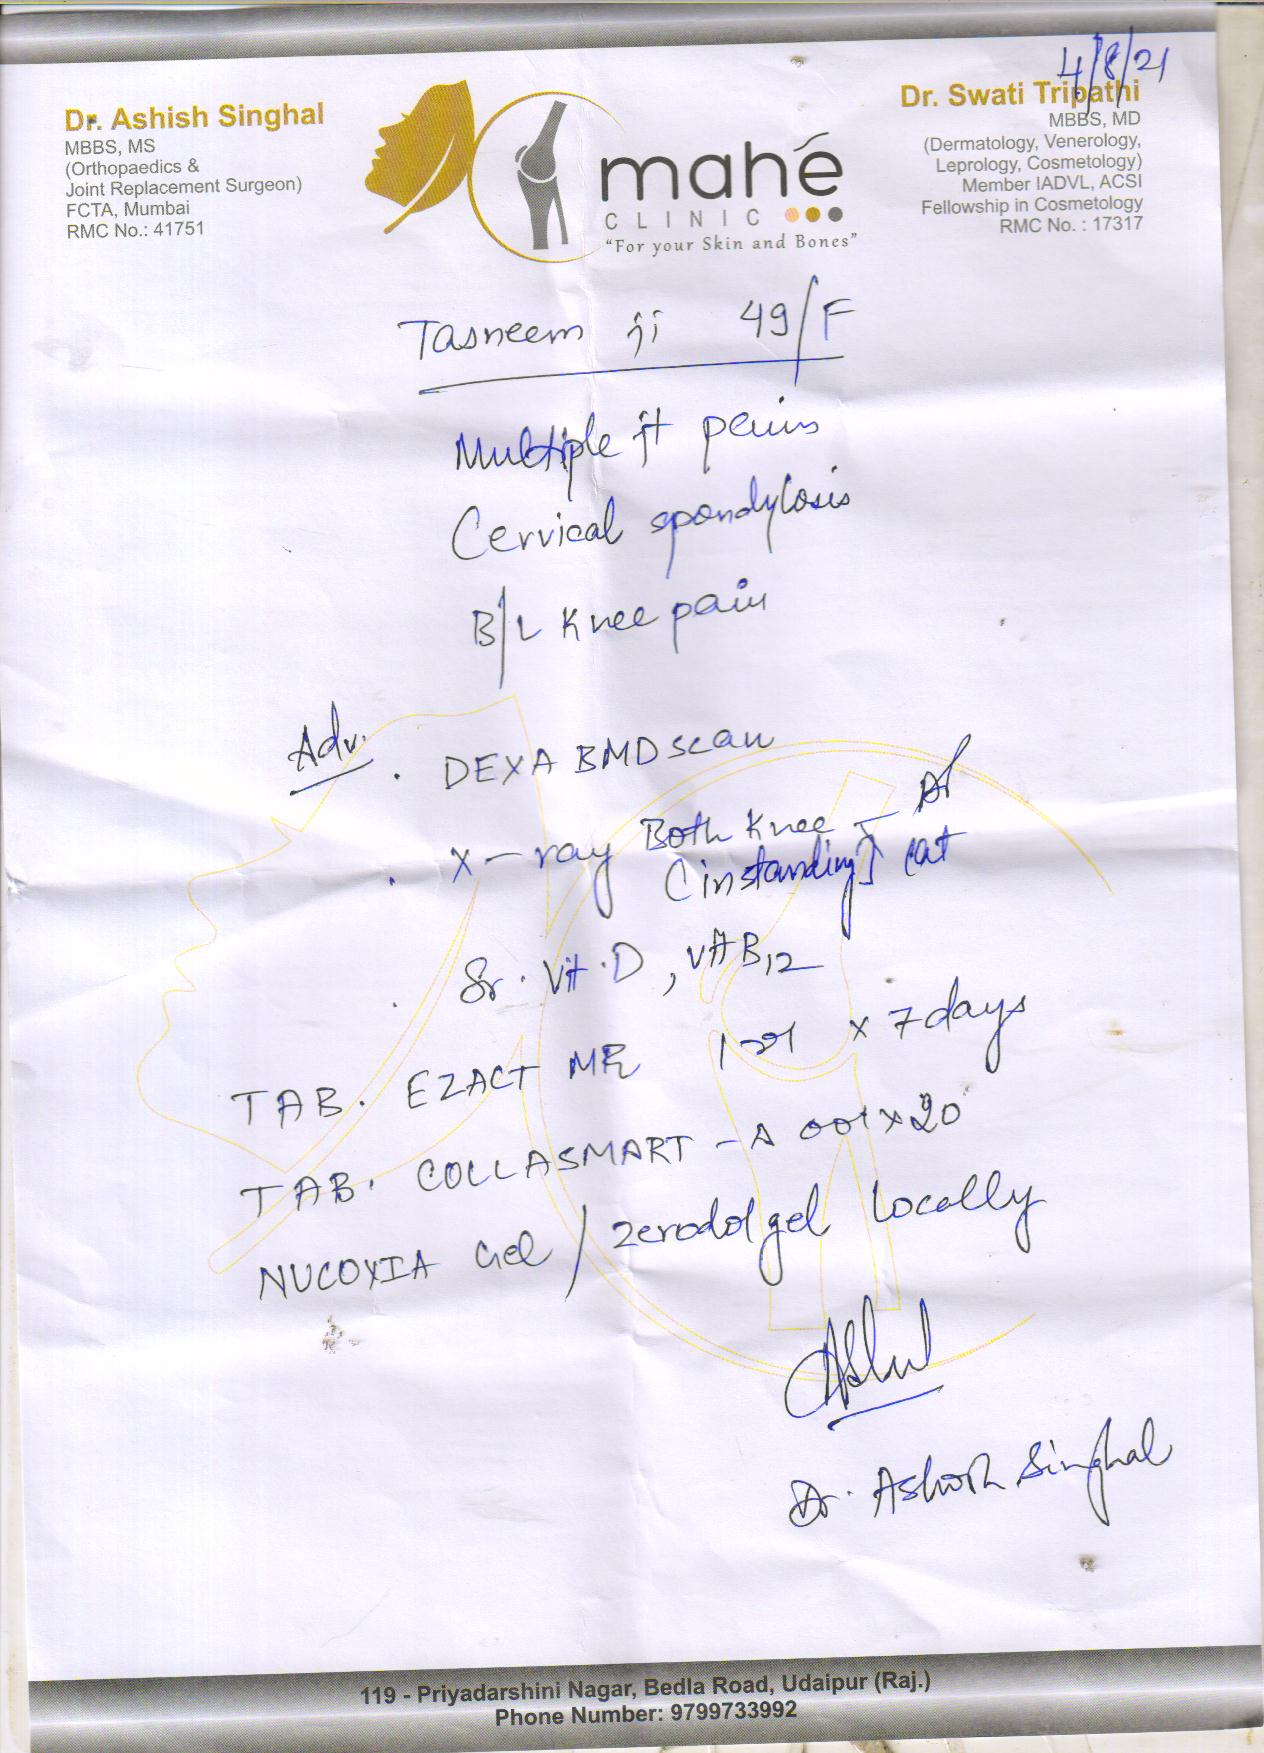 4/8/21
Dr. Ashish Singhal
MBBS, MS
(Orthopaedics &
Joint Replacement Surgeon)
FCTA, Mumbai
RMC No.: 41751
mahé
CLINIC
"For your Skin and Bones"
Dr. Swati Tripathi
MBBS, MD
(Dermatology, Venerology,
Leprology, Cosmetology)
Member IADVL, ACSI
Fellowship in Cosmetology
RMC No. : 17317
Tasneem ji 49/F
Multiple jt pains
Cervical spondylosis
B/L Knee pain
Adv. . DEXA BMD scan
. X-ray Both Knee - AP
(in standing) Lat
. Sr. Vit. D, Vit B12
TAB. EZACT MR x 7 days
TAB. COLLASMART - A 001 x 20
NUCOXIA Gel / Zerodol gel Locally
Dr. Ashish Singhal
119 - Priyadarshini Nagar, Bedla Road, Udaipur (Raj.)
Phone Number: 9799733992